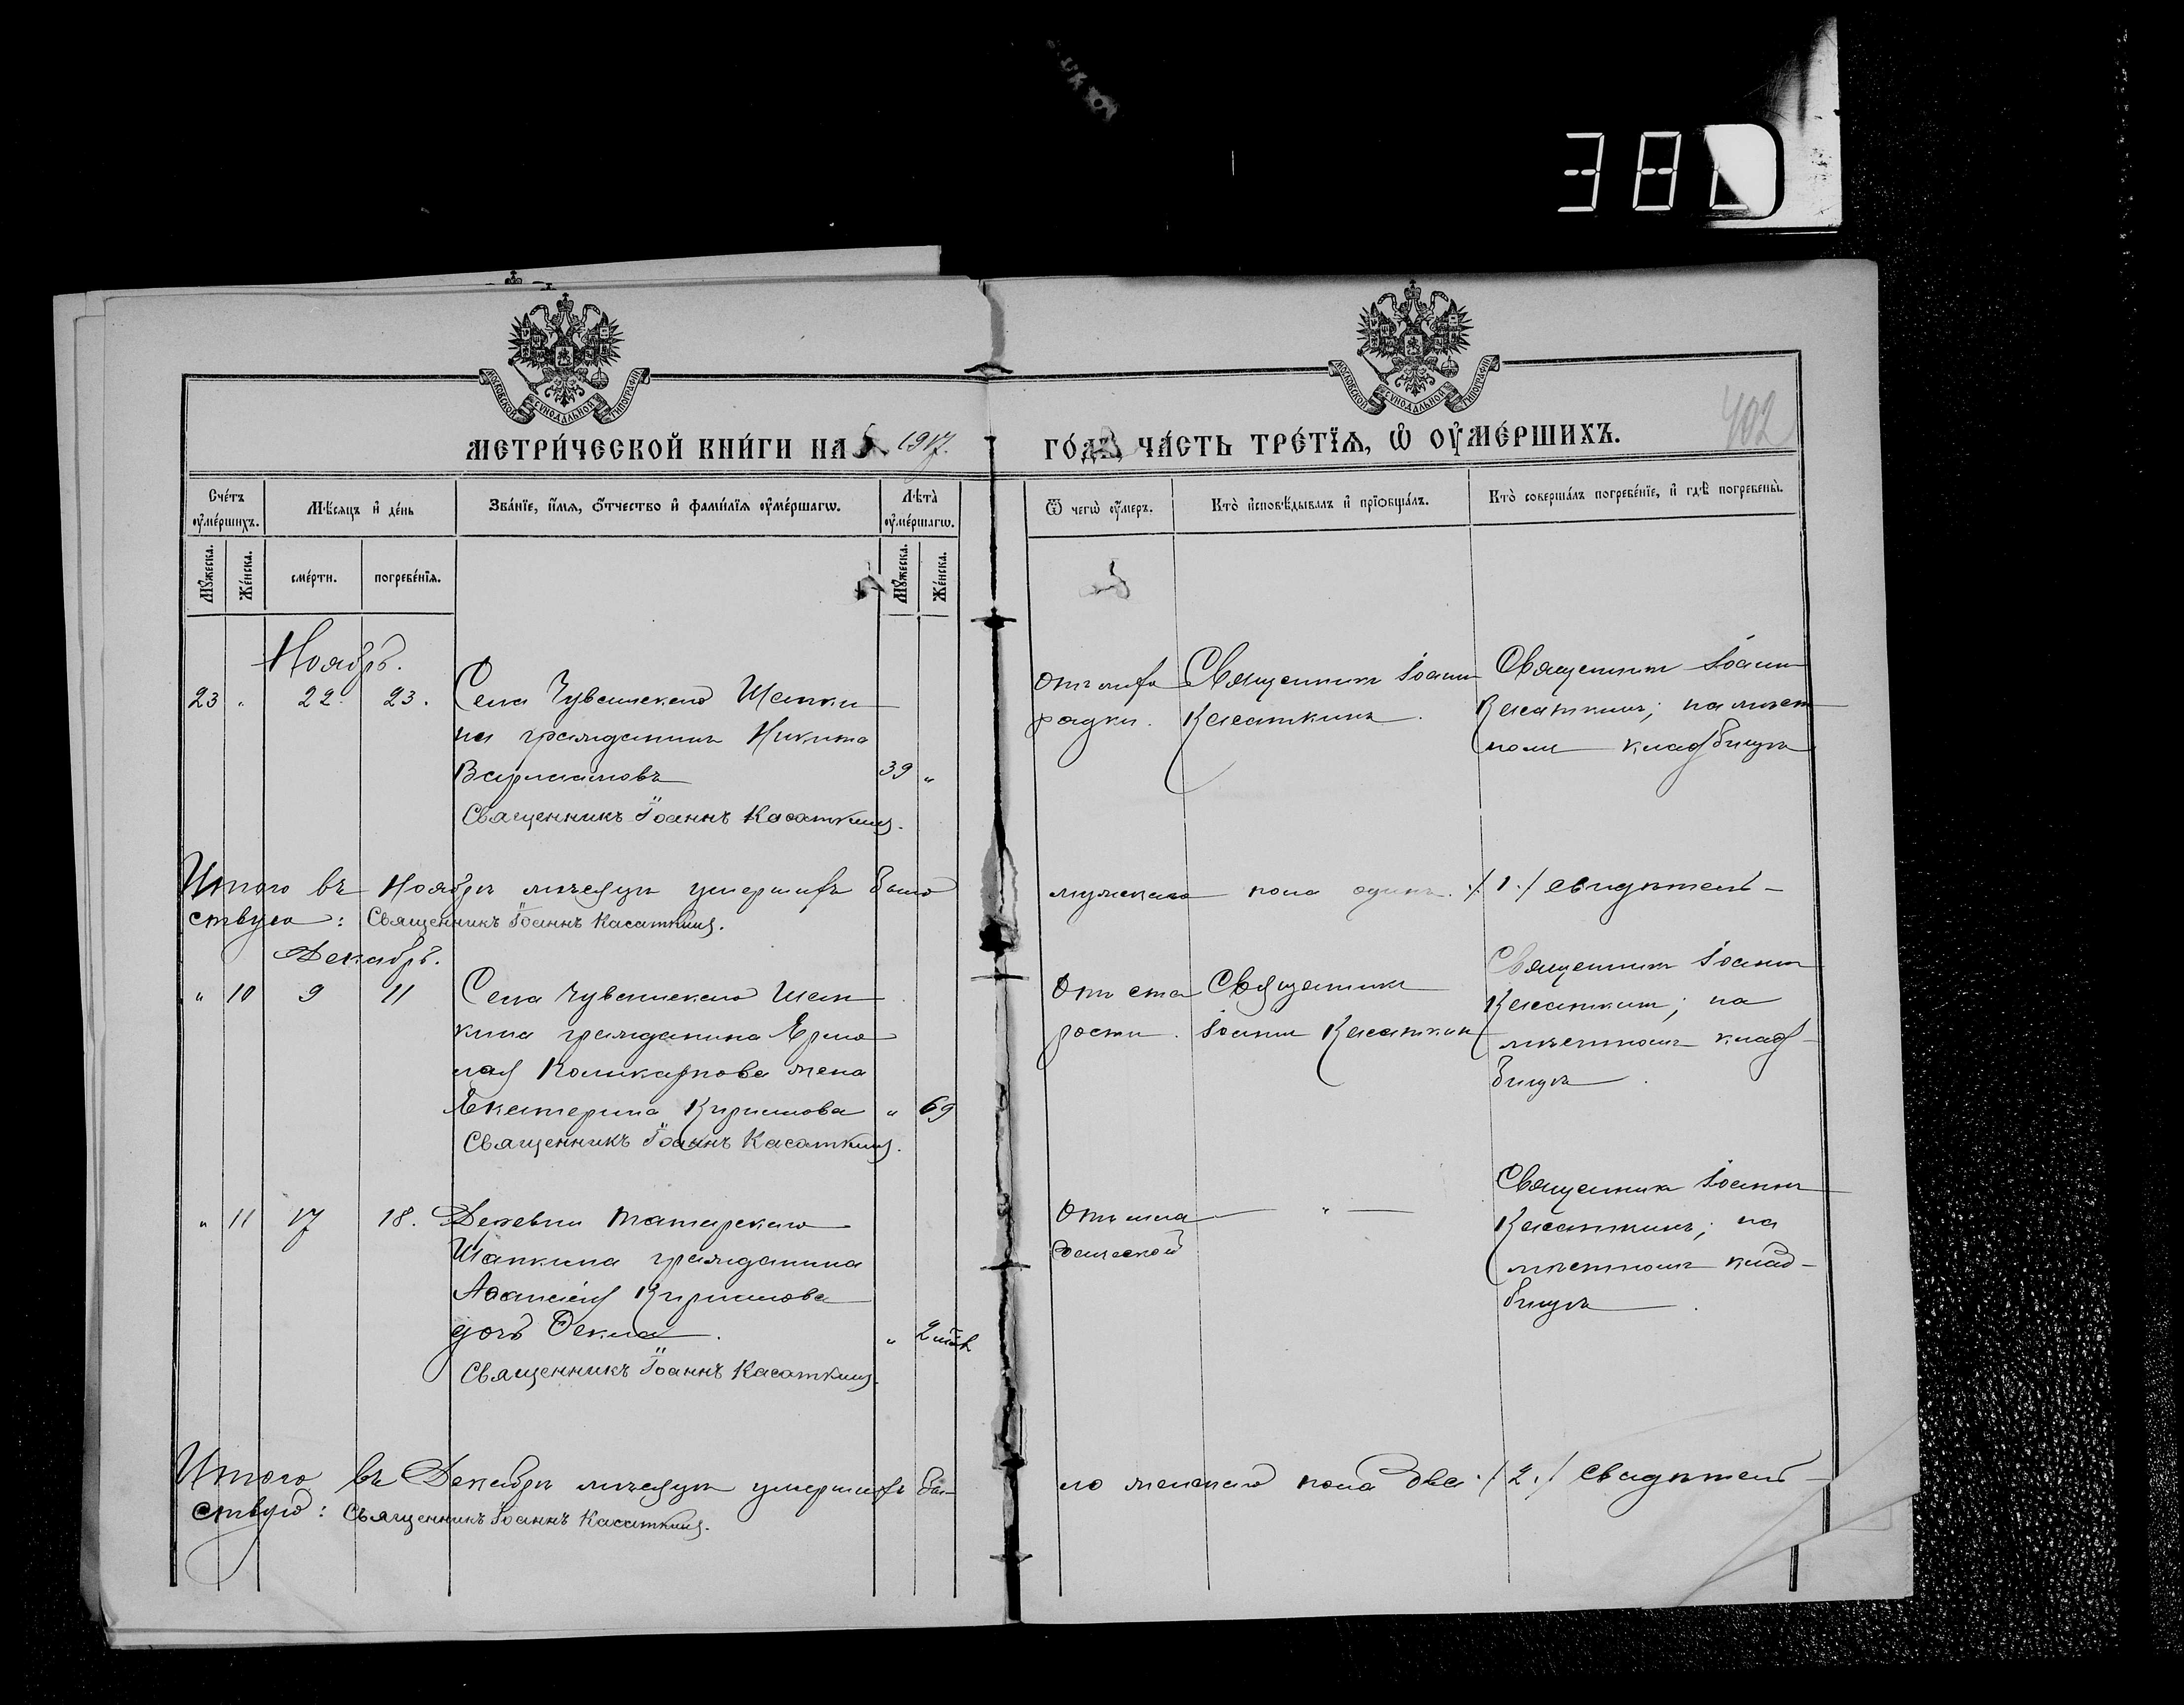 38
МОСКОВСКОЙ СѴНОДАЛЬНОЙ ТИПОГРАФІИ
МОСКОВСКОЙ СѴНОДАЛЬНОЙ ТИПОГРАФІИ
402
МЕТРИ́ЧЕСКОЙ КНИ́ГИ НА 1917.
ГО́ДЪ, ЧА́СТЬ ТРЕ́ТЇѦ, Ѿ ОУ҆МЕ́РШИХЪ.
Сче́тъ оу҆ме́ршихъ.
Мѣ́сяцъ и҆ де́нь
Зва́нїе, и҆́мѧ, ѻ҆́тчество и҆ фами́лїѧ оу҆ме́ршагѡ.
Лѣта̀ оу҆ме́ршагѡ.
Ѿ чегѡ̀ оу҆́меръ.
Кто̀ и҆сповѣ́дывалъ и҆ прїѻбща́лъ.
Кто̀ соверша́лъ погребе́нїе, и҆ гдѣ̀ погребены̀.
Мꙋ́жеска.
Же́нска.
сме́рти.
погребе́нїѧ.
Мꙋ́жеска.
Же́нска.
Ноябрь.
23 „ 22. 23. Села Чувашскаго Шапки
на гражданинъ Никита
Варлаамовъ 39 „
Священникъ Іоаннъ Касаткинъ.
Отъ лихо
радки.
Священникъ Іоаннъ
Касаткинъ.
Священникъ Іоаннъ
Касаткинъ; на мѣст
номъ кладбищѣ
Итого въ Ноябрѣ мѣсяцѣ умершихъ было мужскаго пола одинъ. /1./ свидѣтель-
ствую: Священникъ Іоаннъ Касаткинъ.
Декабрь.
„ 10 9 11 Села Чувашскаго Шап
кина гражданина Ермо
лая Поликарпова жена
Екатерина Кириллова „ 69
Священникъ Іоаннъ Касаткинъ.
Отъ ста
рости.
Священникъ
Іоаннъ Касаткинъ
Священникъ Іоаннъ
Касаткинъ; на
мѣстномъ клад-
бищѣ.
„ 11 17 18. Деревни Татарскаго
Шапкина гражданина
Аѳанасія Кириллова
дочь Ѳекла. „ 2
Священникъ Іоаннъ Касаткинъ.
Отъ мла
денческой
— „ —
Священникъ Іоаннъ
Касаткинъ; на
мѣстномъ клад-
бищѣ.
Итого въ Декабрѣ мѣсяцѣ умершихъ бы- ло женскаго пола два. /2./ свидѣтель-
ствую: Священникъ Іоаннъ Касаткинъ.